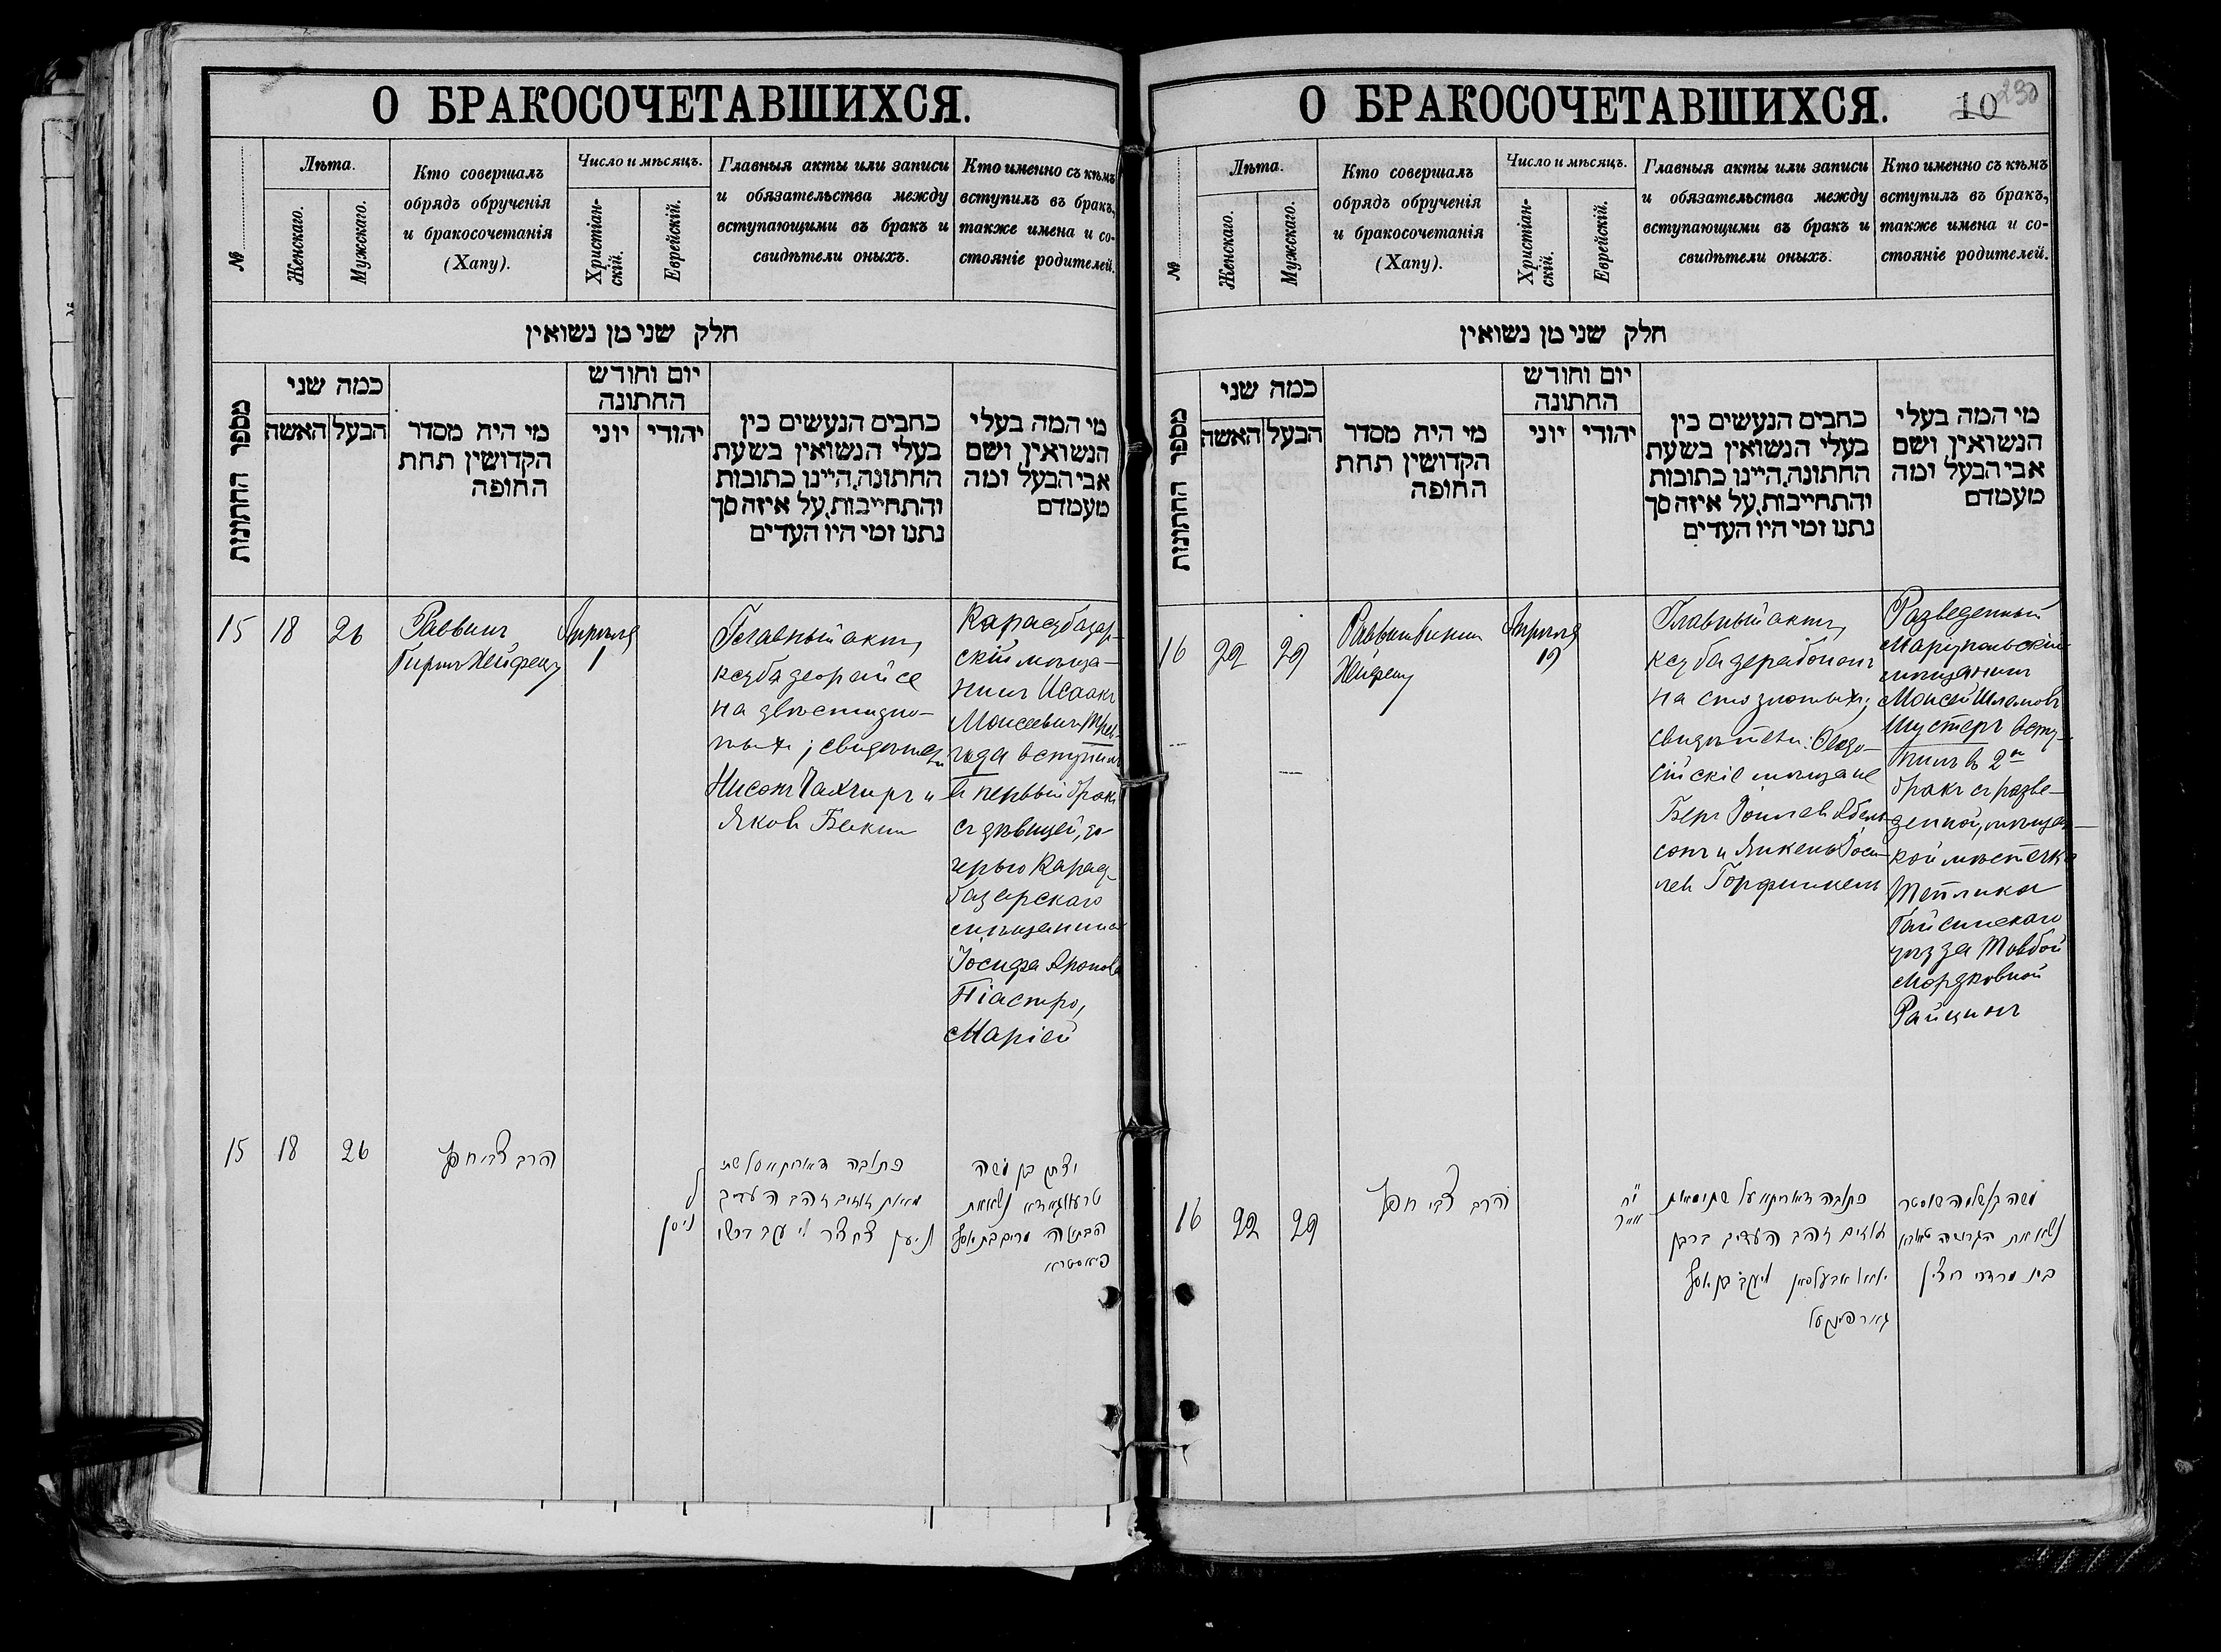 О БРАКОСОЧЕТАВШИХСЯ.
№
Лѣта.
Женскаго.
Мужскаго.
Кто совершалъ
обрядъ обрученія
и бракосочетанія
(Хапу).
Число и мѣсяцъ.
Христіан-
скій.
Еврейскій.
Главныя акты или записи
и обязательства между
вступающими въ бракъ и
свидѣтели оныхъ.
Кто именно съ кѣмъ
вступилъ въ бракъ,
также имена и со-
стояніе родителей.
חלק שני מן נשואין
מספר החתונות
כמה שני
האשה
הבעל
מי היה מסדר
הקדושין תחת
החופה
יום וחודש
החתונה
יוני
יהודי
כתבים הנעשים בין
בעלי הנשואין בשעת
החתונה, היינו כתובות
והתחייבות, על איזה סך
נתנו ומי היו העדים
מי המה בעלי
הנשואין ושם
אבי הבעל ומה
מעמדם
15
18
26
Раввинъ
Хейфецъ
Апрѣля
1
Главный актъ,
кезба деорайсе
на двѣсти зло-
тыхъ; свидѣтели
Нисонъ и
Яковъ
Карасубазар-
скій мѣща-
нинъ Исаакъ
Моисеевичъ
вступилъ
въ первый бракъ
съ дѣвицей, до-
черью Карасу-
базарскаго
мѣщанина
Іосифа Аронова
Піастро,
Маріей
15
18
26
הרב צבי חפץ
ניסן
כתובה דאורייתא על שתי
מאות זהב העדים
יצחק בן משה
נשא את
הבתולה מרים בת יוסף
פיאסטרא
О БРАКОСОЧЕТАВШИХСЯ.
10
230
№
Лѣта.
Женскаго.
Мужскаго.
Кто совершалъ
обрядъ обрученія
и бракосочетанія
(Хапу).
Число и мѣсяцъ.
Христіан-
скій.
Еврейскій.
Главныя акты или записи
и обязательства между
вступающими въ бракъ и
свидѣтели оныхъ.
Кто именно съ кѣмъ
вступилъ въ бракъ,
также имена и со-
стояніе родителей.
חלק שני מן נשואין
מספר החתונות
כמה שני
האשה
הבעל
מי היה מסדר
הקדושין תחת
החופה
יום וחודש
החתונה
יוני
יהודי
כתבים הנעשים בין
בעלי הנשואין בשעת
החתונה, היינו כתובות
והתחייבות, על איזה סך
נתנו ומי היו העדים
מי המה בעלי
הנשואין ושם
אבי הבעל ומה
מעמדם
16
22
29
Раввинъ
Хейфецъ
Апрѣля
19
Главный актъ,
кезба дерабононъ
на сто злотыхъ;
свидѣтели: Ѳеодо-
сійскіе мѣщане
Беръ Абель-
сонъ и
Горфинкель
Разведенный
Маріупольскій
мѣщанинъ
Моисей Шлемовъ
Шустеръ всту-
пилъ въ 2й
бракъ съ разве-
денной, мѣщан-
кой мѣстечка
Теплика
Гайсинскаго
уѣзда Товбой
Мордковной
Райцинъ
16
22
29
הרב צבי חפץ
אייר
זהב העדים
משה שוסטר
נשא את הגרושה
מרדכי רייצין